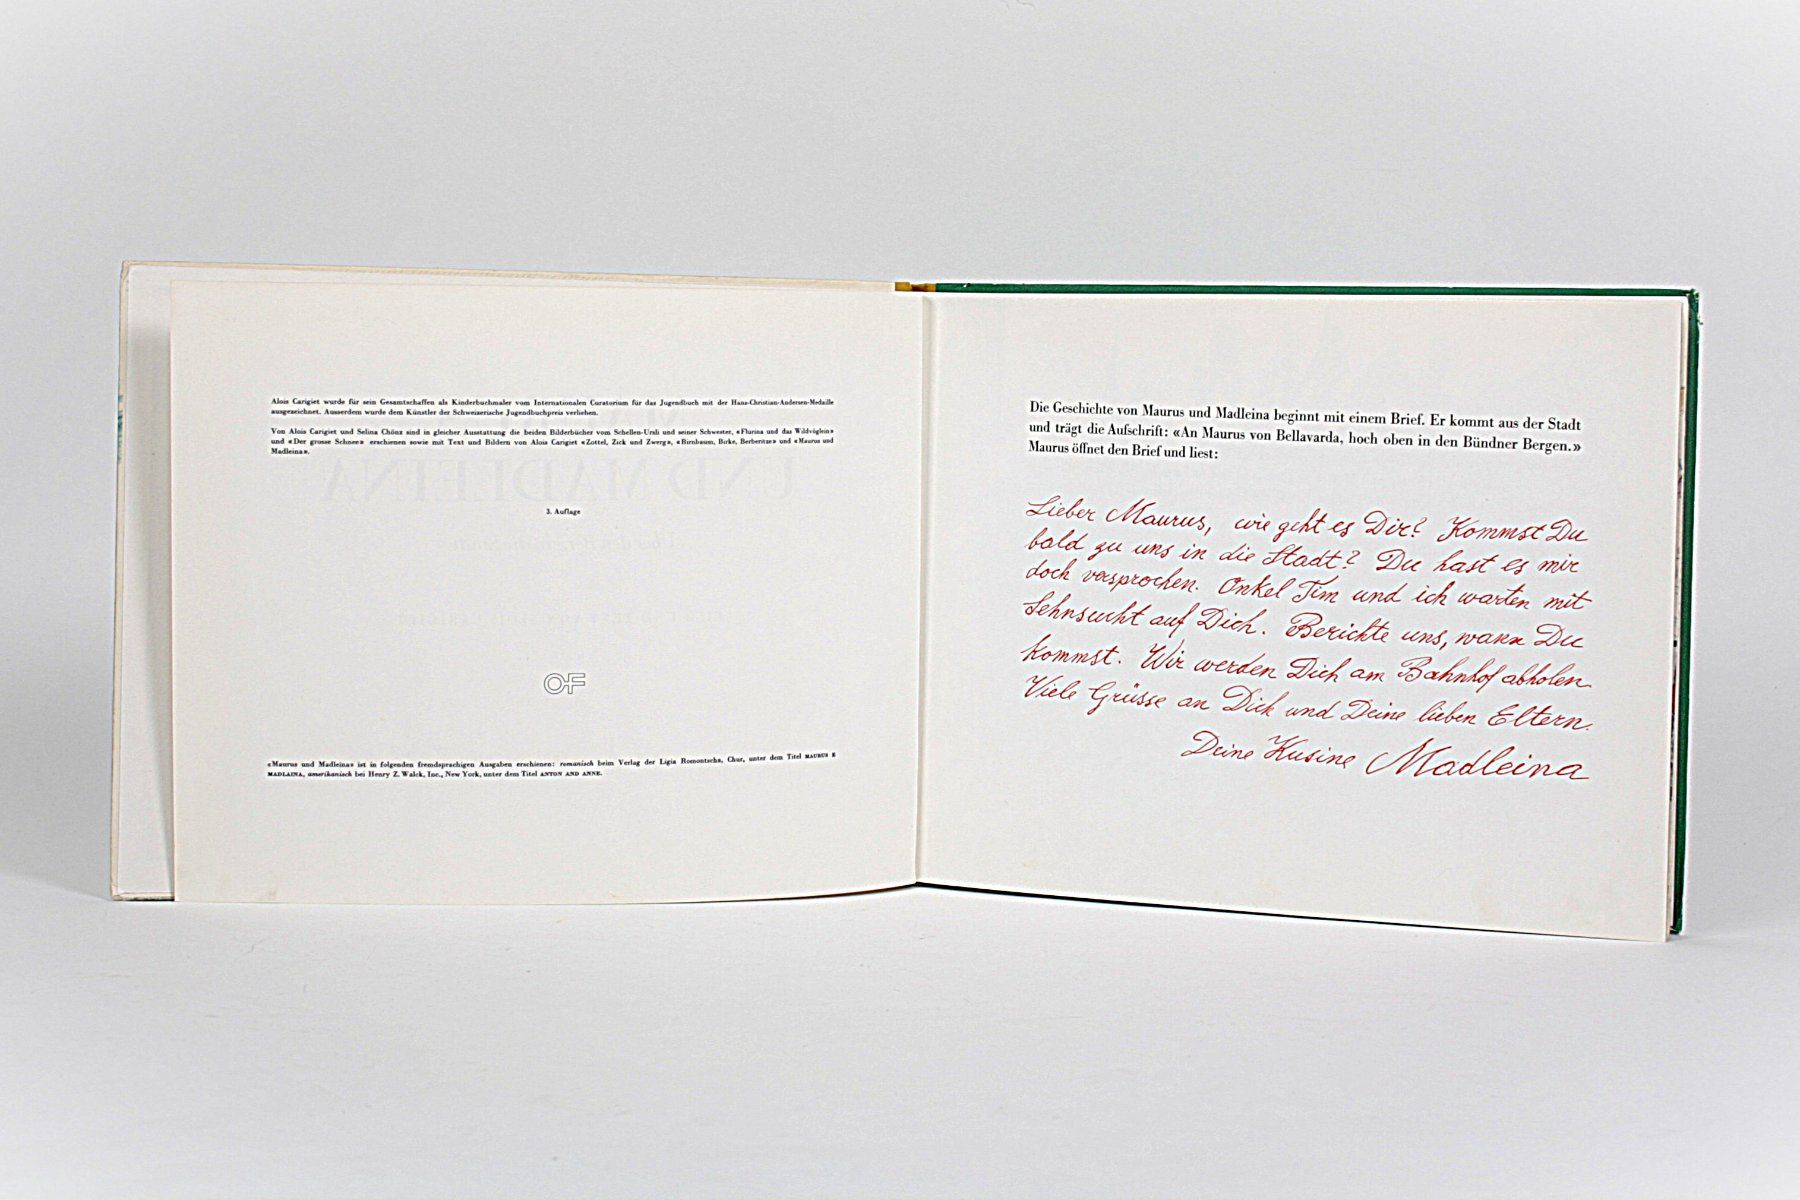 Alois Carigiet wurde für sein Gesamtschaffen als Kinderbuchmaler vom Internationalen Curatorium für das Jugendbuch mit der Hans-Christian-Andersen-Medaille
ausgezeichnet. Ausserdem wurde dem Künstler der Schweizerische Jugendbuchpreis verliehen.
Von Alois Carigiet und Selina Chönz sind in gleicher Ausstattung die beiden Bilderbücher vom Schellen-Ursli und seiner Schwester, «Flurina und das Wildvöglein»
und «Der grosse Schnee» erschienen sowie mit Text und Bildern von Alois Carigiet «Zottel, Zick und Zwerg», «Birnbaum, Birke, Berberitze» und «Maurus und
Madleina».
3. Auflage
OF
«Maurus und Madleina» ist in folgenden fremdsprachigen Ausgaben erschienen: romanisch beim Verlag der Ligia Romontscha, Chur, unter dem Titel MAURUS E
MADLAINA, amerikanisch bei Henry Z. Walck, Inc., New York, unter dem Titel ANTON AND ANNE.
Die Geschichte von Maurus und Madleina beginnt mit einem Brief. Er kommt aus der Stadt
und trägt die Aufschrift: «An Maurus von Bellavarda, hoch oben in den Bündner Bergen.»
Maurus öffnet den Brief und liest:
Lieber Maurus, wie geht es Dir? Kommst Du
bald zu uns in die Stadt? Du hast es mir
doch versprochen. Onkel Tim und ich warten mit
Sehnsucht auf Dich. Berichte uns, wann Du
kommst. Wir werden Dich am Bahnhof abholen.
Viele Grüsse an Dich und Deine lieben Eltern.
Deine Kusine Madleina